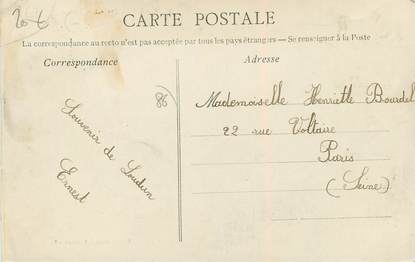 20-6
CARTE POSTALE
La correspondance au recto n'est pas acceptée par tous les pays étrangers — Se renseigner à la Poste
Correspondance
Adresse
86
Souvenir de Loudun
Ernest
Mademoiselle Henriette Bourdel
22 rue Voltaire
Paris
(Seine)